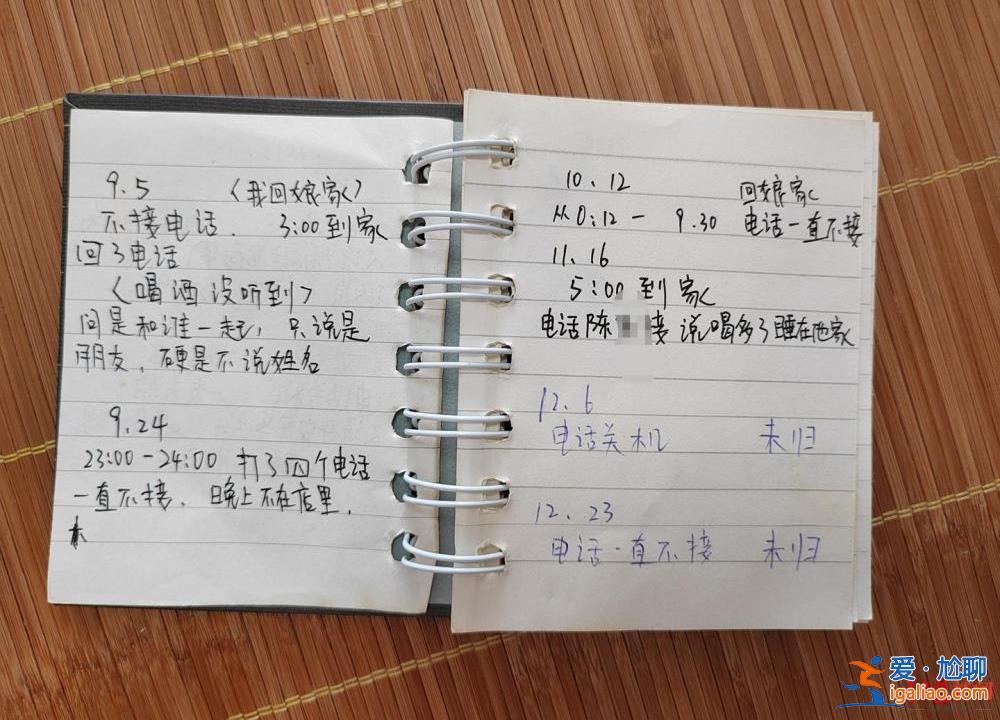 9.5 （我回娘家）
不接电话. 3:00到家
回了电话
（喝酒没听到）
问是和谁一起，只说是
朋友，硬是不说姓名
9.24
23:00-24:00 打了四个电话
一直不接. 晚上不在店里.
10.12 回娘家
从0:12- 9.30 电话一直不接
11.16
5:00到家
电话陈 接 说喝多了睡在他家
12.6
电话关机 未归
12.23
电话一直不接 未归
爱·尬聊
igaliao.com